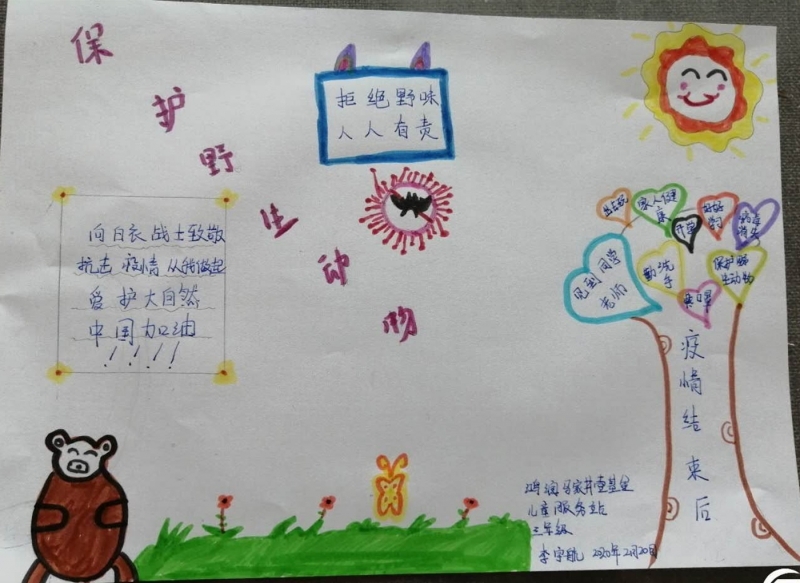 保护野生动物
拒绝野味
人人有责
向白衣战士致敬
抗击疫情从我做起
爱护大自然
中国加油
！！！！
出去玩
家人健康
开学
好好学习
病毒消失
见到同学老师
勤洗手
保护野生动物
疫情结束后
儿童服务站
三年级
李宇航 2020年2月20日